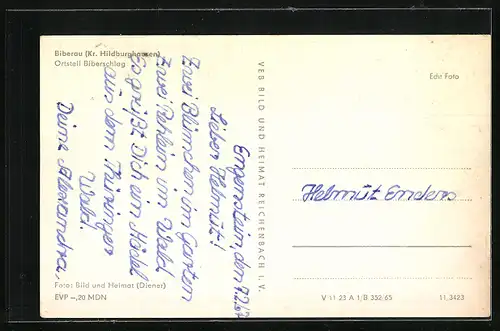 Biberau (Kr. Hildburghausen)
Ortsteil Biberschlag
Engenstein, den 7.2.67
Lieber Helmut!
Zwei Blümchen im Garten
Zwei Rehlein im Wald
Es grüßt Dich ein Mädel
aus dem Thüringer
Wald!
Deine Alexandra.
Foto: Bild und Heimat (Diener)
EVP –,20 MDN
VEB BILD UND HEIMAT REICHENBACH I. V.
Edn Foto
Helmut Enders
V 11 23 A 1/B 352/65
11,3423